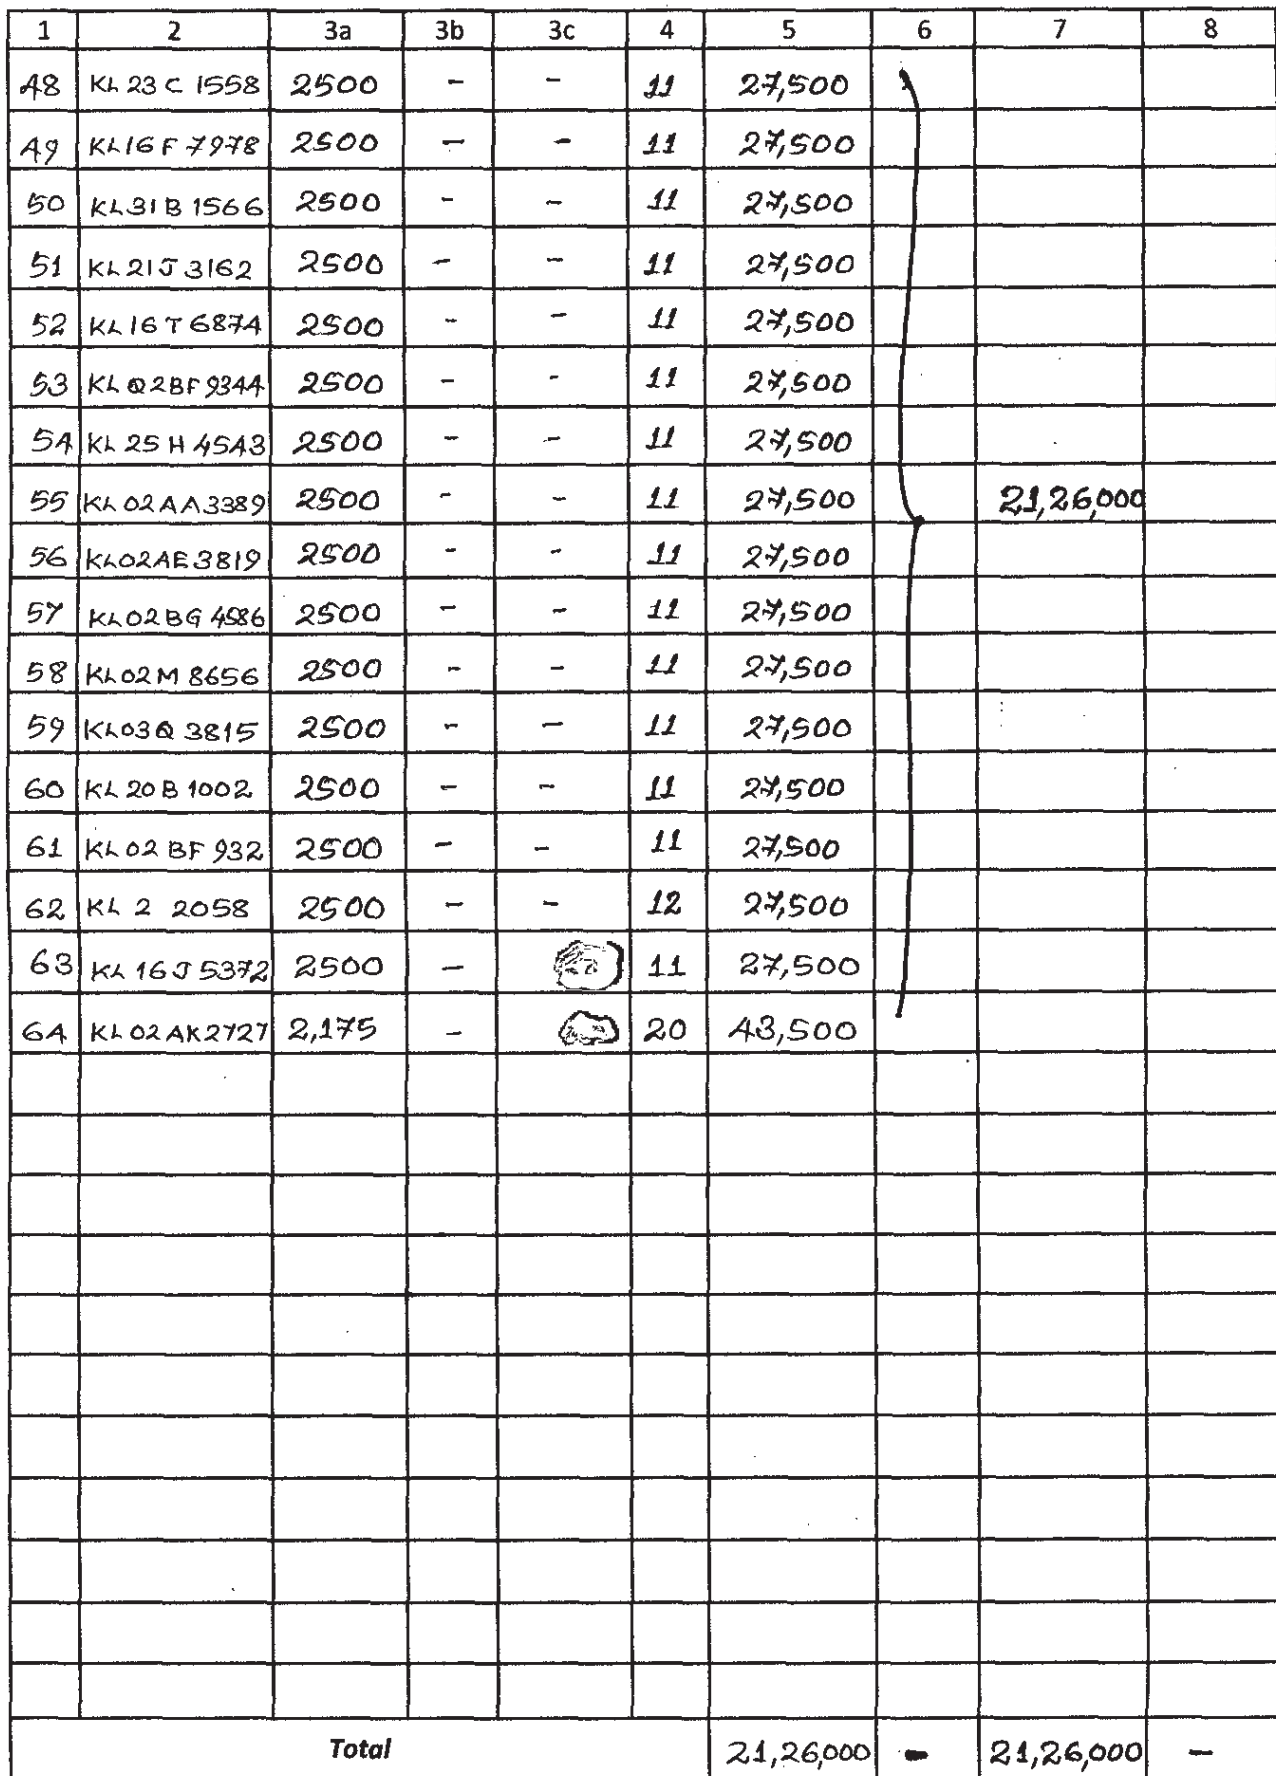 1 2 3a 3b 3c 4 5 6 7 8
48 KL 23 C 1558 2500 - - 11 27,500
49 KL16 F 7978 2500 - - 11 27,500
50 KL31B 1566 2500 - - 11 27,500
51 KL21J 3162 2500 - - 11 27,500
52 KL16 T 6874 2500 - - 11 27,500
53 KL02BF 9344 2500 - - 11 27,500
54 KL 25 H 4543 2500 - - 11 27,500
55 KL02AA3389 2500 - - 11 27,500 21,26,000
56 KL02AE3819 2500 - - 11 27,500
57 KL02BG 4586 2500 - - 11 27,500
58 KL02M 8656 2500 - - 11 27,500
59 KL03Q 3815 2500 - - 11 27,500
60 KL 20B 1002 2500 - - 11 27,500
61 KL02 BF 932 2500 - - 11 27,500
62 KL 2 2058 2500 - - 12 27,500
63 KL 16J 5372 2500 - 11 27,500
64 KL02AK2727 2,175 - 20 43,500
Total 21,26,000 - 21,26,000 -